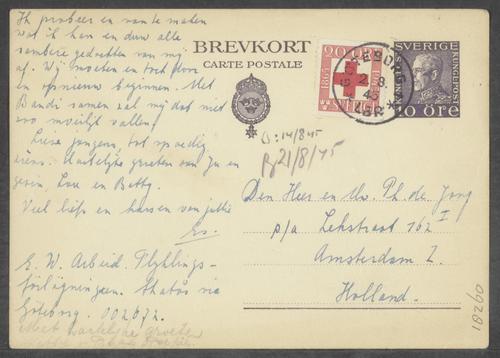 Ik probeer er van te maken
wat ik kan en duw alle
sombere gedachten van mij
af. Wij moeten er toch door
en opnieuw beginnen. Met
Bandi samen zal mij dat niet
zoo moeilijk vallen!
Lieve jongens, tot spoedig
Hartelijke groeten van Jo en
gezin, Lou en Betty.
Veel liefs en kussen van jullie
Es.
E. W. Arbeid. Flyktings-
förläggningen. via
Göteborg. 002672.
Met hartelijke groeten
BREVKORT
CARTE POSTALE
20 ÖRE
1865
SVERIGE
KUNGSPOST
10 ÖRE
B: 14/8 45
B 21/8/45
Den Heer en Ph. de Jong
p/a Lekstraat 162 I
Amsterdam Z.
Holland.
18260